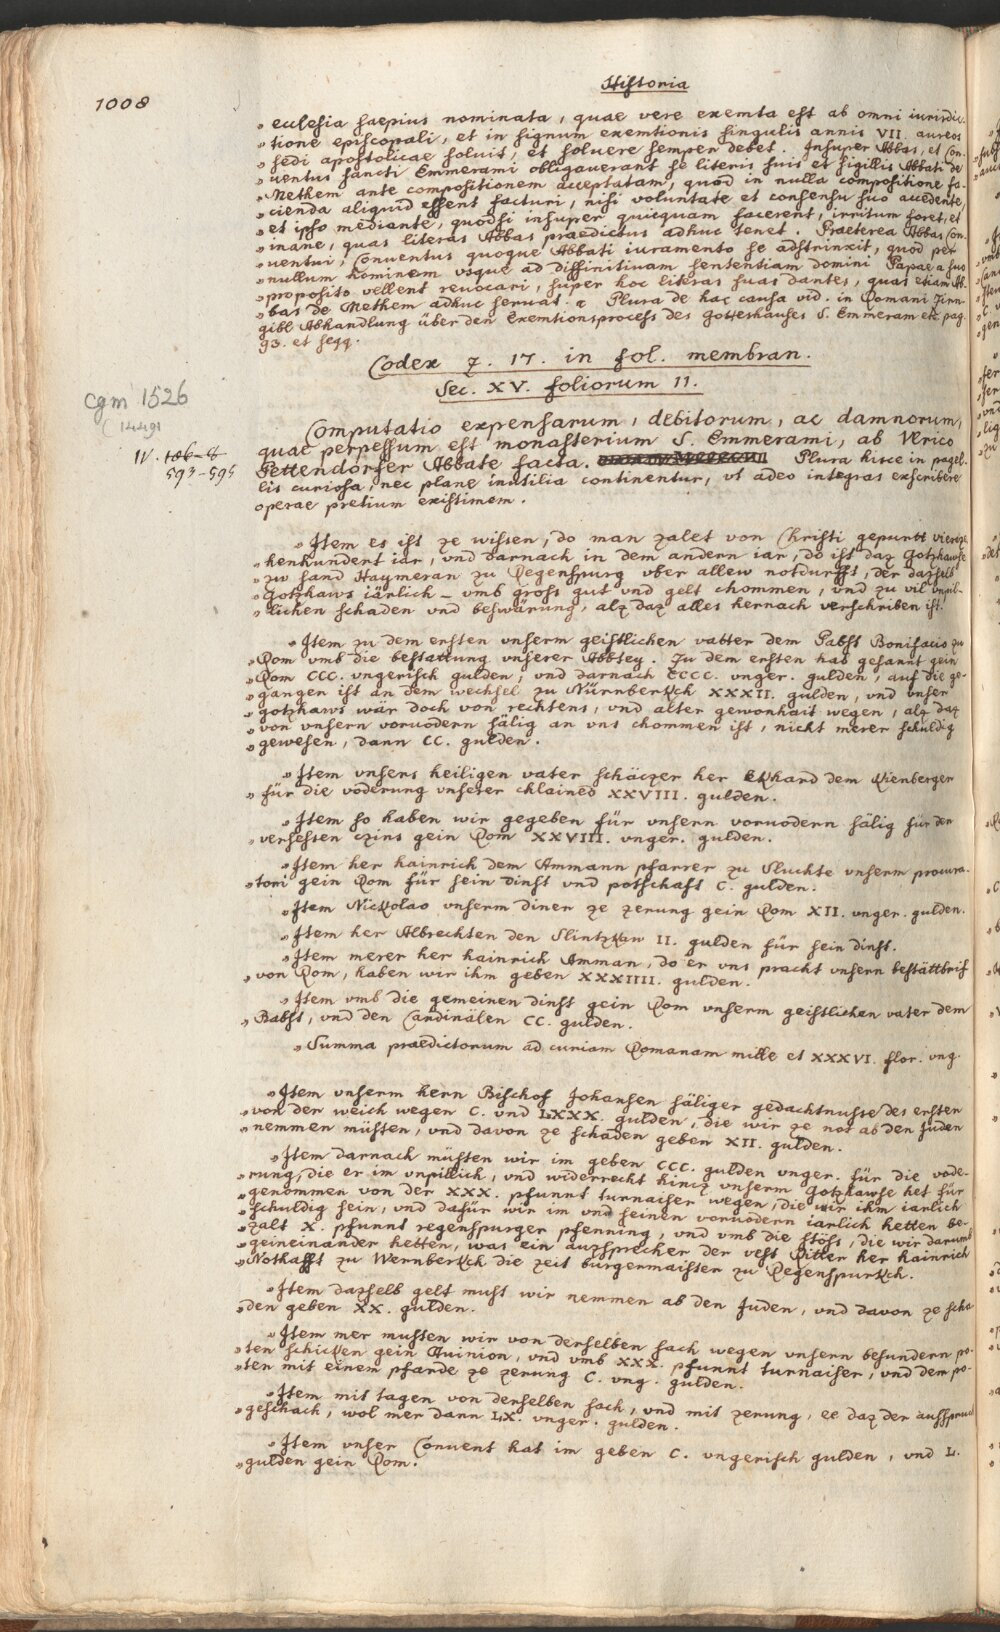 Historia
1008
» ecclesia saepius nominata, quae vere exemta est ab omni iurisdic-
» tione episcopali, et in signum exemtionis singulis annis VII. aureos
» sedi apostolicae soluit, et soluere semper debet. Insuper Abbas, et Con-
» uentus sancti Emmerami obligauerant se literis suis et sigillis Abbati de
» Methem ante compositionem acceptatam, quod in nulla compositione fa-
» cienda aliquid essent facturi, nisi voluntate et consensu suo accedente,
» et ipso mediante, quodsi insuper quicquam facerent, irritum foret, et
» inane, quas literas Abbas praedictus adhuc tenet. Praeterea Abbas, Con-
» uentui, Conuentus quoque Abbati iuramento se adstrinxit, quod per
» nullum hominem vsque ad diffinitiuam sententiam domini Papae a suo
» proposito vellent reuocari, super hoc literas suas dantes, quas etiam Ab-
» bas de Methem adhuc seruat. « Plura de hac causa vid. in Romani Zirn-
gibl Abhandlung über den Exemtionsprocess des Gotteshauses S. Emmeram etc. pag.
93. et seqq.
Codex 7. 17. in fol. membran.
Sec. XV. foliorum 11.
cgm 1526
(1449)
IV.
593-595
Computatio expensarum, debitorum, ac damnorum,
quae perpessum est monasterium S. Emmerami, ab Vlrico
Pettendorfer Abbate facta. Plura hisce in pagel-
lis curiosa, nec plane inutilia continentur, vt adeo integras exscribere
operae pretium existimem.
» Item es ist ze wissen, do man zalet von Christi gepurtt vierze-
» henhundert iar, vnd darnach in dem andern iar, do ist daz Gotzhawse
» zw sand Haymeran zu Regenspurg vber allew notdurfft, der dasselb
» Gotzhaws iärlich – vmb gross gut vnd gelt chommen, vnd zu vil vnpil-
» lichen schaden vnd beswärung, alz daz alles hernach verschriben ist.
» Item zu dem ersten vnserm geistlichen vatter dem Pabst Bonifacio zu
» Rom vmb die bestattung vnserer Abbtey. Zu dem ersten hab gesannt gein
» Rom CCC. vngerisch gulden, vnd darnach CCCC. vnger. gulden, auf die ge-
» gangen ist an dem wechsel zu Nürnberkch XXXII. gulden, vnd vnser
» gotzhaws wär doch von rechtens, vnd alter gewonhait wegen, alz daz
» von vnsern voruodern sälig an vns chommen ist, nicht merer schuldig
» gewesen, dann CC. gulden.
» Item vnsers heiligen vater schäczer her Ekhard dem Kienberger
» für die vöderung vnserer chlained XXVIII. gulden.
» Item so haben wir gegeben für vnsern voruodern sälig für den
» versessen czins gein Rom XXVIII. vnger. gulden.
» Item her hainrich dem Ammann pfarrer zu Sluchte vnserm procura-
» tori gein Rom für sein dinst vnd potschaft C. gulden.
» Item Nickolao vnserm diner ze zerung gein Rom XII. vnger. gulden.
» Item her Albrechten den Slintzkaw II. gulden für sein dinst.
» Item merer her hainrich Amman, do er vns pracht vnsern bestättbrif
» von Rom, haben wir ihm geben XXXIIII. gulden.
» Item vmb die gemeinen dinst gein Rom vnserm geistlichen vater dem
» Babst, vnd den Cardinälen CC. gulden.
» Summa praedictorum ad curiam Romanam mille et XXXVI. flor. vng.
» Item vnserm hern Bischof Johansen säliger gedachtnusse des ersten
» von der weich wegen C. vnd LXXX. gulden, die wir ze not ab den Juden
» nemmen müsten, vnd davon ze schaden geben XII. gulden.
» Item darnach müsten wir im geben CCC. gulden vnger. für die vode-
» rung, die er im vnpillich, vnd widerrecht hincz vnserm Gotzhawse het für
» genommen von der XXX. pfunnt turnaiser wegen, die wir ihm iärlich
» schuldig sein, vnd dafür wir im vnd seinen voruodern iärlich hetten be-
» zalt X. pfunnt regenspurger pfenning, vnd vmb die stöss, die wir darumb
» geineinander hetten, was ein auzsprecher der vest Ritter her hainrich
» Nothafft zu Wernberkch die zeit burgermaister zu Regenspurkch.
» Item dasselb gelt must wir nemmen ab den Juden, vnd davon ze scha-
» den geben XX. gulden.
» Item mer musten wir von derselben sach wegen vnsern besundern po-
» ten schicken gein Auinion, vnd vmb XXX. pfunnt turnaiser, vnd dem po-
» ten mit einem pfarde ze zerung C. vng. gulden.
» Item mit tagen von derselben sach, vnd mit zerung, ee daz der ausspruch
» geschach, wol mer dann LX. vnger. gulden.
» Item vnser Convent hat im geben C. vngerisch gulden, vnd L.
» gulden gein Rom.